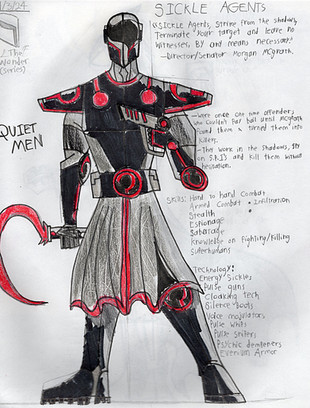 SICKLE AGENTS
"Sickle Agents, Strike from the shadows,
Terminate your target and leave no
witnesses, BY and means necessary."
-Director/Senator Morgan McGrath
/3/24
! The
Wonder
(series)
QUIET
MEN
-were once one time offenders
who couldn't Pay bail until McGrath
found them & turned them into
killers.
-They work in the Shadows, spy
on and Kill them without
hesitation.
Skills: Hand to hand Combat
Armed Combat • Infiltration
Stealth
Espionage
Sabotage
Knowledge on Fighting/Killing
Superhumans
Technology:
Energy Sickles
Pulse guns
Cloaking tech
Silence boots
Voice modulators
Pulse whips
Pulse
Psychic dampeners
Armor